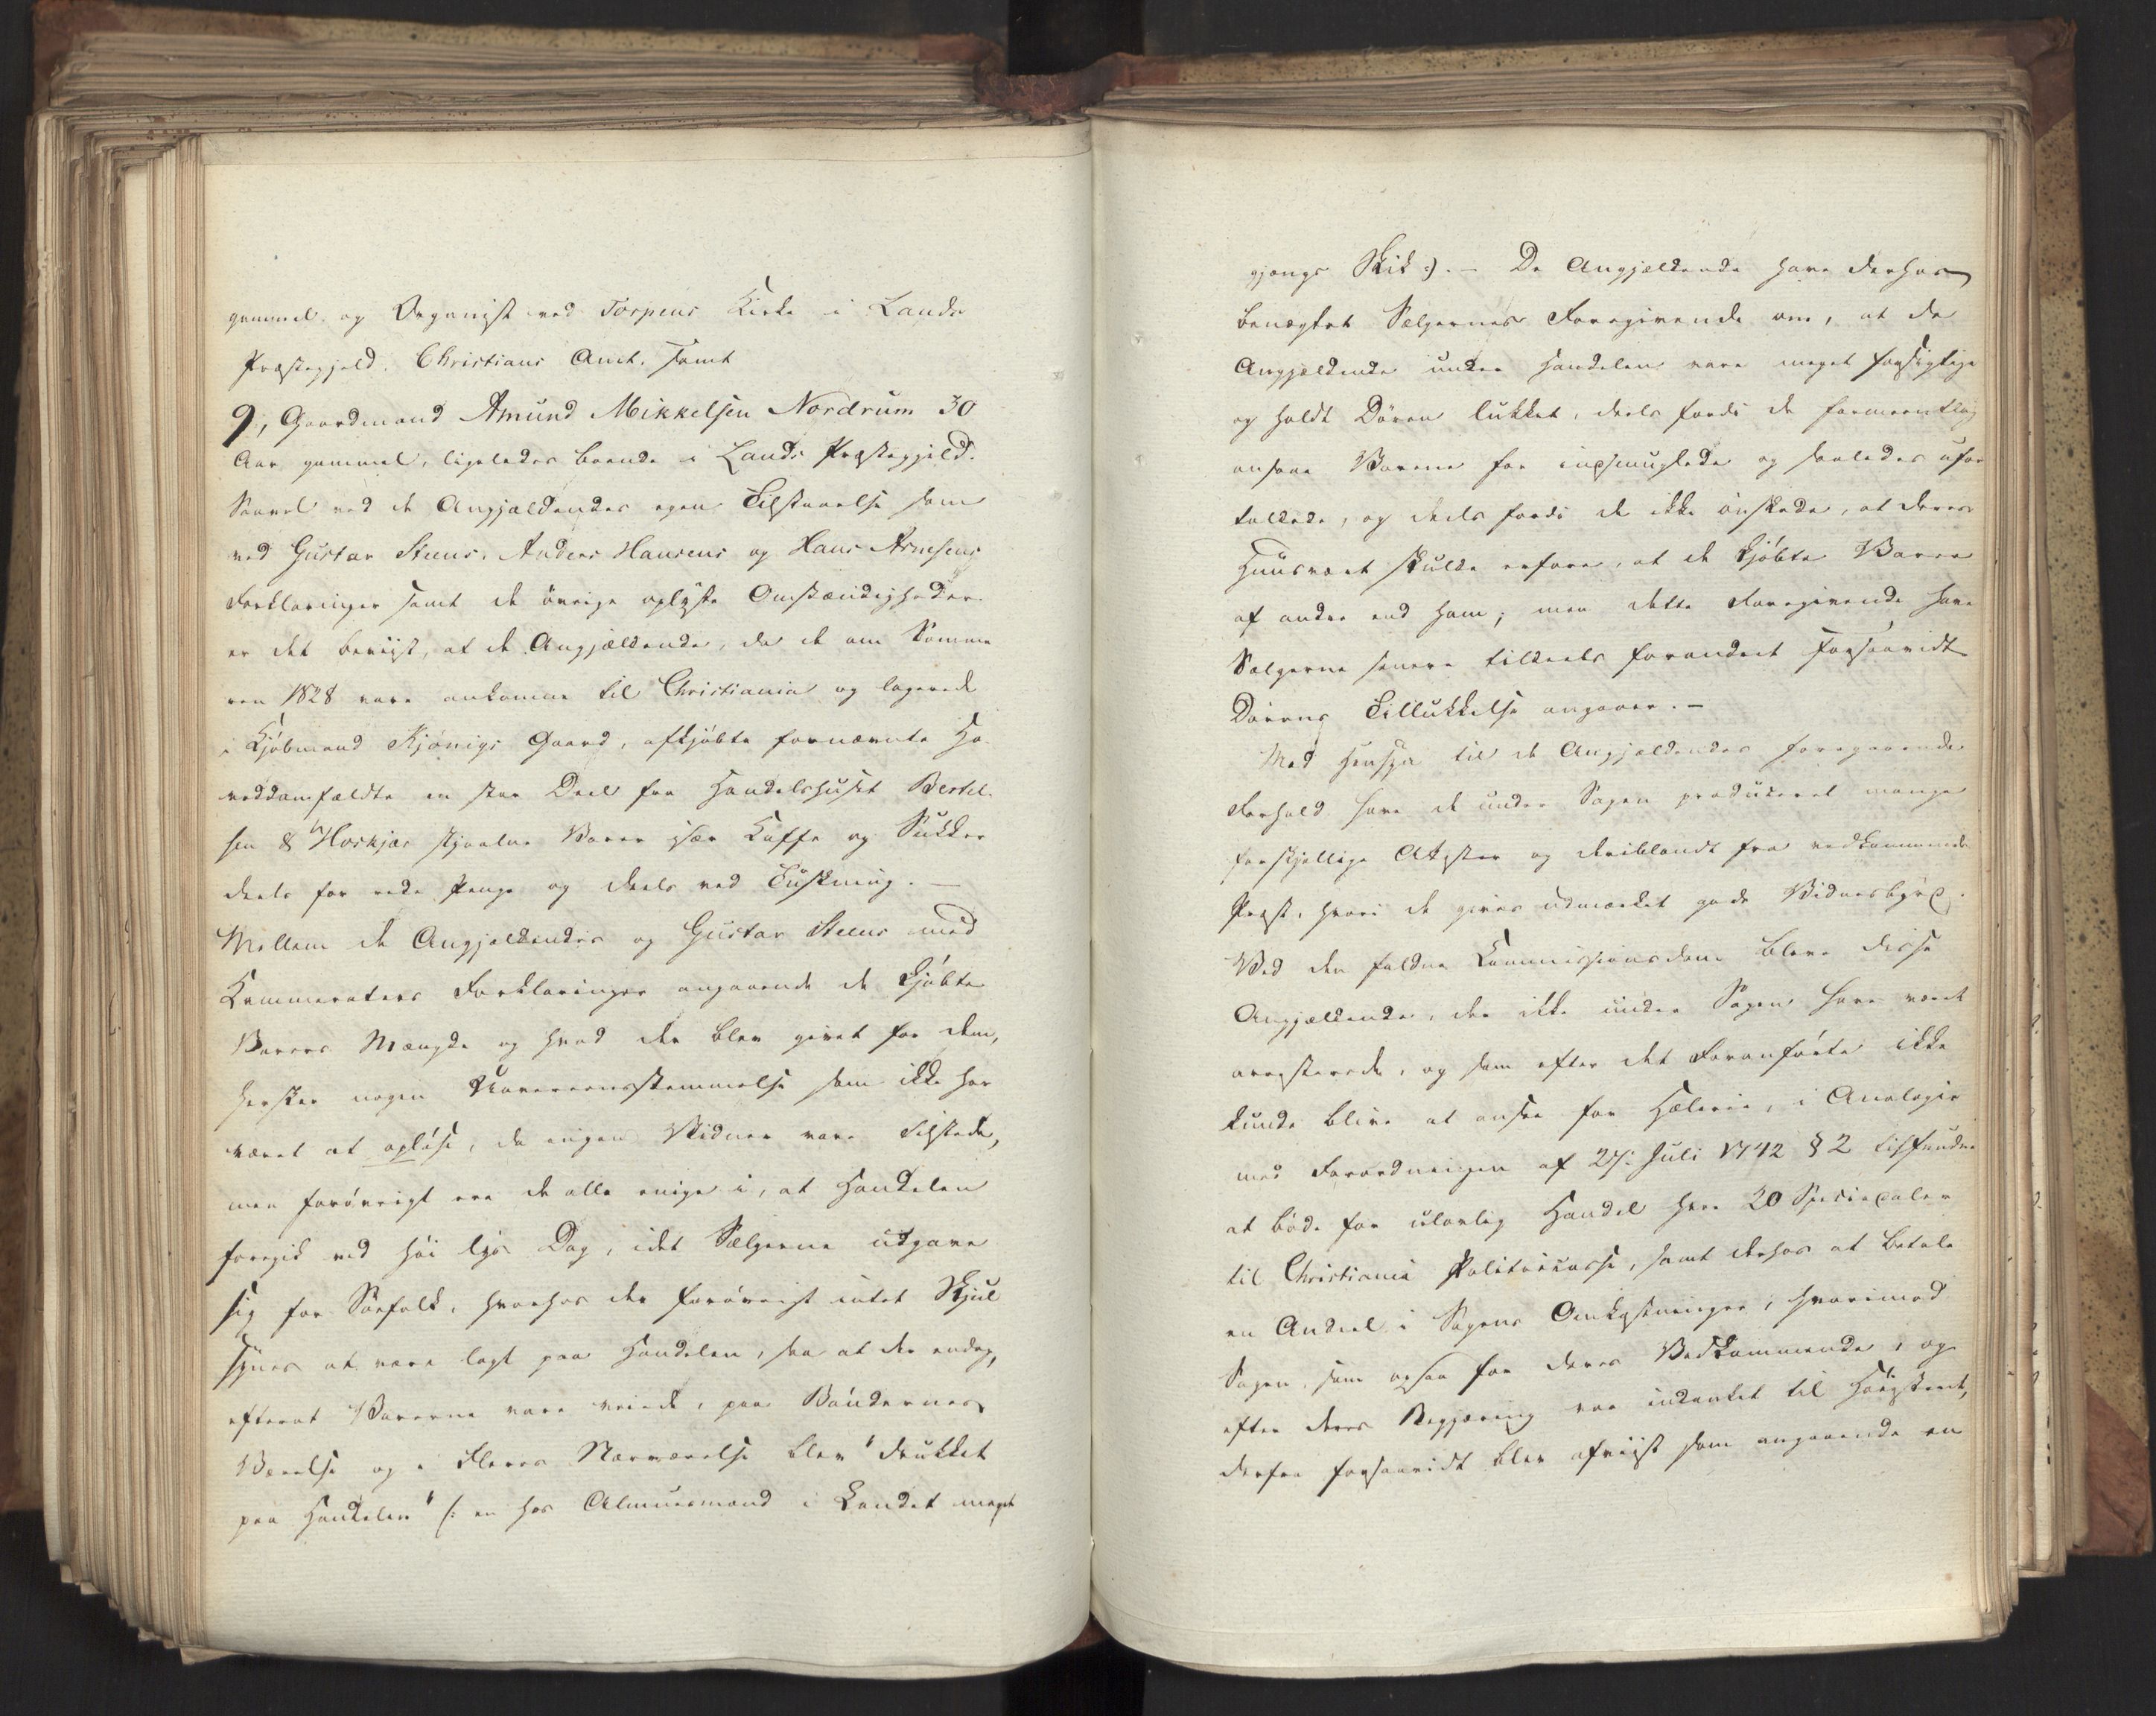 gammel og Organist ved Torpens Kirke i Lands
Præstegjeld. Christians Amt. samt
9, Gaardmand Amund Mikkelsen Nordrum 30
Aar gammel, ligeledes boende i Lands Præstegjeld.
Saavel ved de Angjældendes egen Tilstaaelse som
ved Gustav Steens, Anders Hansens og Hans Arnesens
Forklaringer samt de øvrige oplyste Omstændigheder
er det beviist, at de Angjældende, da de om Somme
ren 1828 vare ankomne til Christiania og logerede
i Kjøbmand Kjønigs Gaard, afkjøbte fornævnte Ho-
veddomfældte en stor Deel fra Handelshuset Bertel-
sen & Hoskjær stjaalne Varer især Kaffe og Sukker
deels for rede Penge og deels ved Tuskning. —
Mellem de Angjældendes og Gustav Steens med
Kammeraters Forklaringer angaaende de kjøbte
Varers Mængde og hvad der blev givet for dem,
hersker nogen Uovereensstemmelse som ikke har
været at opløse, da ingen Vidner vare tilstede,
men forøvrigt ere de alle enige i, at Handelen
foregik ved høi lys Dag, idet Sælgerne udgave
sig for Søefolk, hvorhos der forøvrigt intet Skjul
synes at være lagt paa Handelen, saa at der endog,
efterat Varerne vare veiede, paa Bøndernes
Værelse og i Fleres Nærværelse blev "drukket
paa Handelen" (: en hos Almuesmand i Landet meget
gjængs Skik :). — De Angjældende have derhos
benægtet Sælgernes Foregivende om, at de
Angjældende under Handelen vare meget forsigtige
og holdt Døren lukket, deels fordi de formeentlig
ansaae Varerne for indsmuglede og saaledes ufor
toldede, og deels fordi de ikke ønskede, at deres
Huusvært skulde erfare, at de kjøbte Varer
af andre end ham; men dette Foregivende have
Sælgerne senere tildeels forandret forsaavidt
Dørens Tillukkelse angaaer. —
Med Hensyn til de Angjældendes foregaaende
Forhold have de under Sagen produceret mange
forskjellige Attester og deriblandt fra vedkommende
Præst, hvori de gives udmærket gode Vidnesbyrd.
Ved den faldne Commissionsdom bleve disse
Angjældende, der ikke under Sagen have været
arresterede, og som efter det Foranførte ikke
kunde blive at ansee for Hælerie, i Analogie
med Forordningen af 27: Juli 1742 § 2 tilfundne
at bøde for ulovlig Handel hver 20 Speciedaler
til Christiania Politiecasse, samt derhos at betale
en Andeel i Sagens Omkostninger; hvorimod
Sagen, som ogsaa for deres Vedkommende, og
efter deres Begjæring var indanket til Høiesteret,
derfra forsaavidt blev afviist som angaaende en